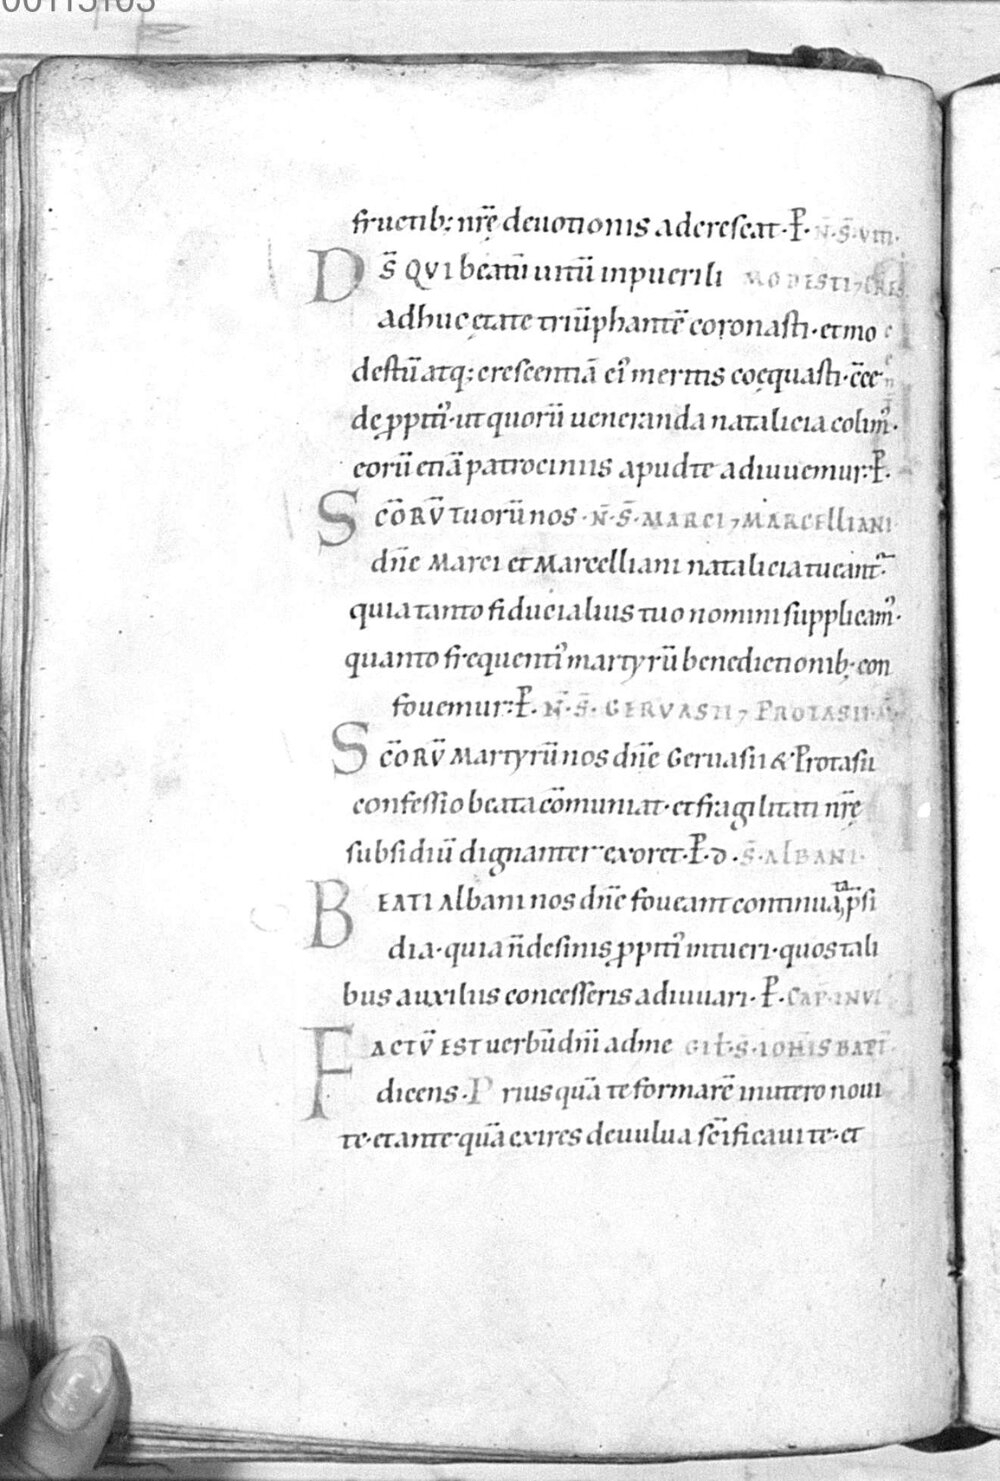 00115103
fructib; nr̄ę deuotionis adcrescat · P̄ · N̄ · S̄ · VITI ·
DS̄ QVI beatū uitū inpuerili MODESTI ⁊ CRES
adhuc ętate triūphantē coronasti · et mo
destū atq; crescentiā ei᾽ meritis coęquasti · c̄ce
dę ꝓpiti᾽ · ut quorū ueneranda natalicia colim᾽ ·
eorū etiā patrociniis apud te adiuuemur : P̄ ·
SC̄ORV̄ tuorū nos · N̄ · S̄ · MARCI ⁊ MARCELLIANI
dn̄e Marci et Marcelliani natalicia tueant᾽ ·
quia tanto fiducialius tuo nomini supplicam᾽ ·
quanto frequenti᾽ martyrū benedictionib; con
fouemur : P̄ · N̄ · S̄ · GERVASII ⁊ PROTASII ·
SC̄ORV̄ Martyrū nos dn̄e Geruasii & Protasii
confessio beata cōmuniat · et fragilitati nr̄ę
subsidiū dignanter exoret · P̄ · D · S̄ · ALBANI ·
BEATI Albani nos dn̄e foueant continuata p̄si
dia · quia n̄ desinis ꝓpiti᾽ intueri · quos tali
bus auxiliis concesseris adiuuari · P̄ · CAP · IN VI
FACTV̄ EST uerbū dn̄i ad me GIL · S̄ · IOHIS BAPT
dicens · Prius quā te formarē in utero noui
te · et ante quā exires de uulua sc̄ificaui te · et